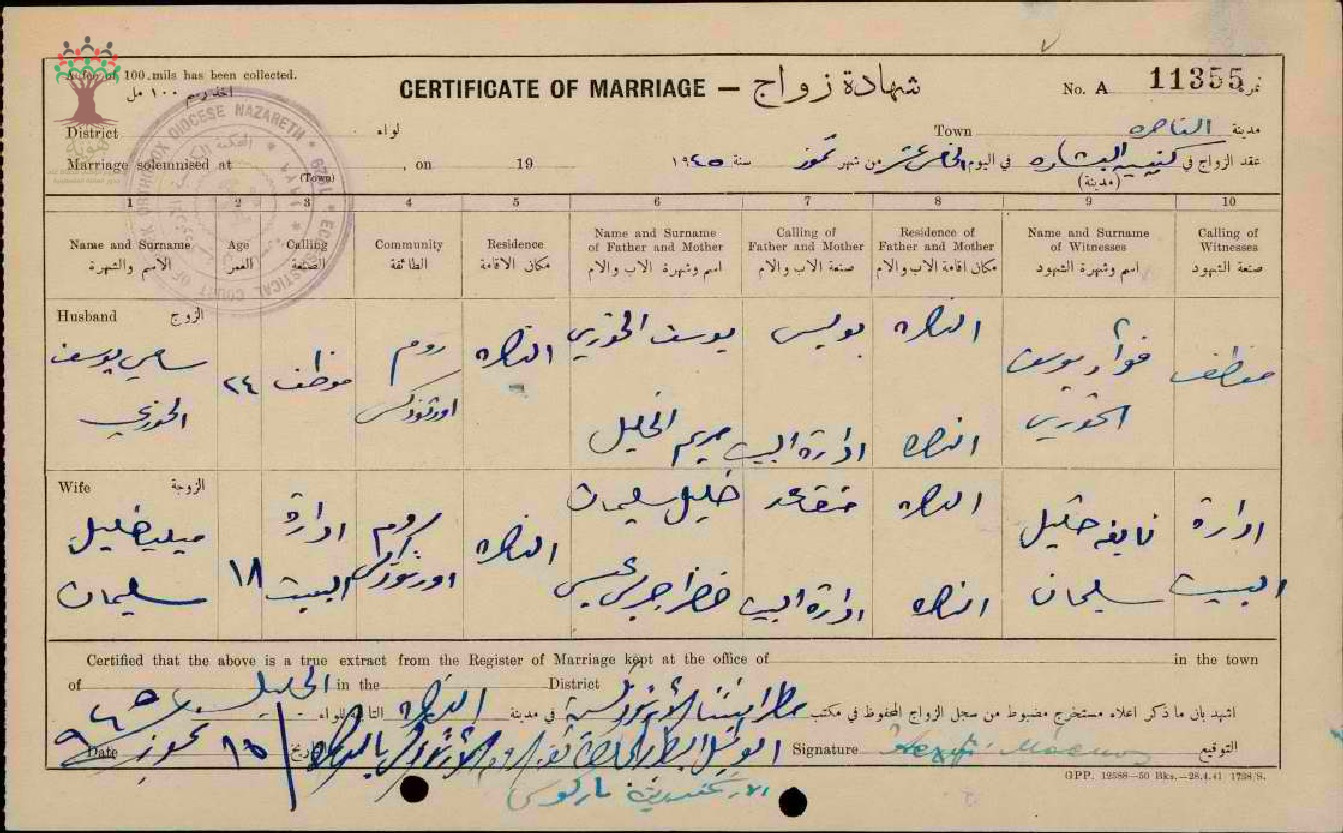 A fee of 100 mils has been collected.
اخذ رسم ١٠٠ مل
CERTIFICATE OF MARRIAGE — شهادة زواج
No. A 11355 نمرة
District لواء
Town الناصره مدينة
Marriage solemnised at , on 19
(Town)
عقد الزواج في كنيسة البشاره في اليوم الخامس عشر من شهر تموز سنة ١٩٤٥
(مدينة)
ORTHODOX DIOCESE NAZARETH • ECCLESIASTICAL COURT OF
1 2 3 4 5 6 7 8 9 10
Name and Surname
الاسم والشهرة
Age
العمر
Calling
الصنعة
Community
الطائفة
Residence
مكان الاقامة
Name and Surname
of Father and Mother
اسم وشهرة الاب والام
Calling of
Father and Mother
صنعة الاب والام
Residence of
Father and Mother
مكان اقامة الاب والام
Name and Surname
of Witnesses
اسم وشهرة الشهود
Calling of
Witnesses
صنعة الشهود
Husband الزوج
سامي يوسف
الخوري
٢٤
موظف
روم
اورثوذكس
الناصره
يوسف الخوري
مريم الخليل
بوليس
ادارة البيت
الناصره
الناصره
فؤاد يوسف
الخوري
موظف
Wife الزوجة
خليل
سليمان
١٨
ادارة
البيت
روم
اورثوذكس
الناصره
خليل سليمان
متقاعد
ادارة البيت
الناصره
الناصره
نايفه خليل
سليمان
ادارة
البيت
Certified that the above is a true extract from the Register of Marriage kept at the office of in the town
of in the District
اشهد بان ما ذكر اعلاه مستخرج مضبوط من سجل الزواج المحفوظ في مكتب مطرانية الارثوذكسية في مدينة الناصره التابعة للواء الجليل
Date ١٥ تموز تاريخ
Signature التوقيع
الارشمندريت ماركوس
GPP. 12588—50 Bks.—28.4.41 1738/S.